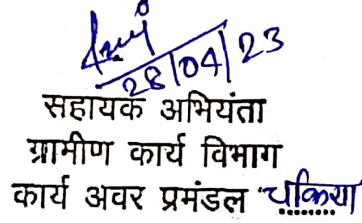 28/04/23
सहायक अभियंता
ग्रामीण कार्य विभाग
कार्य अवर प्रमंडल चकिया